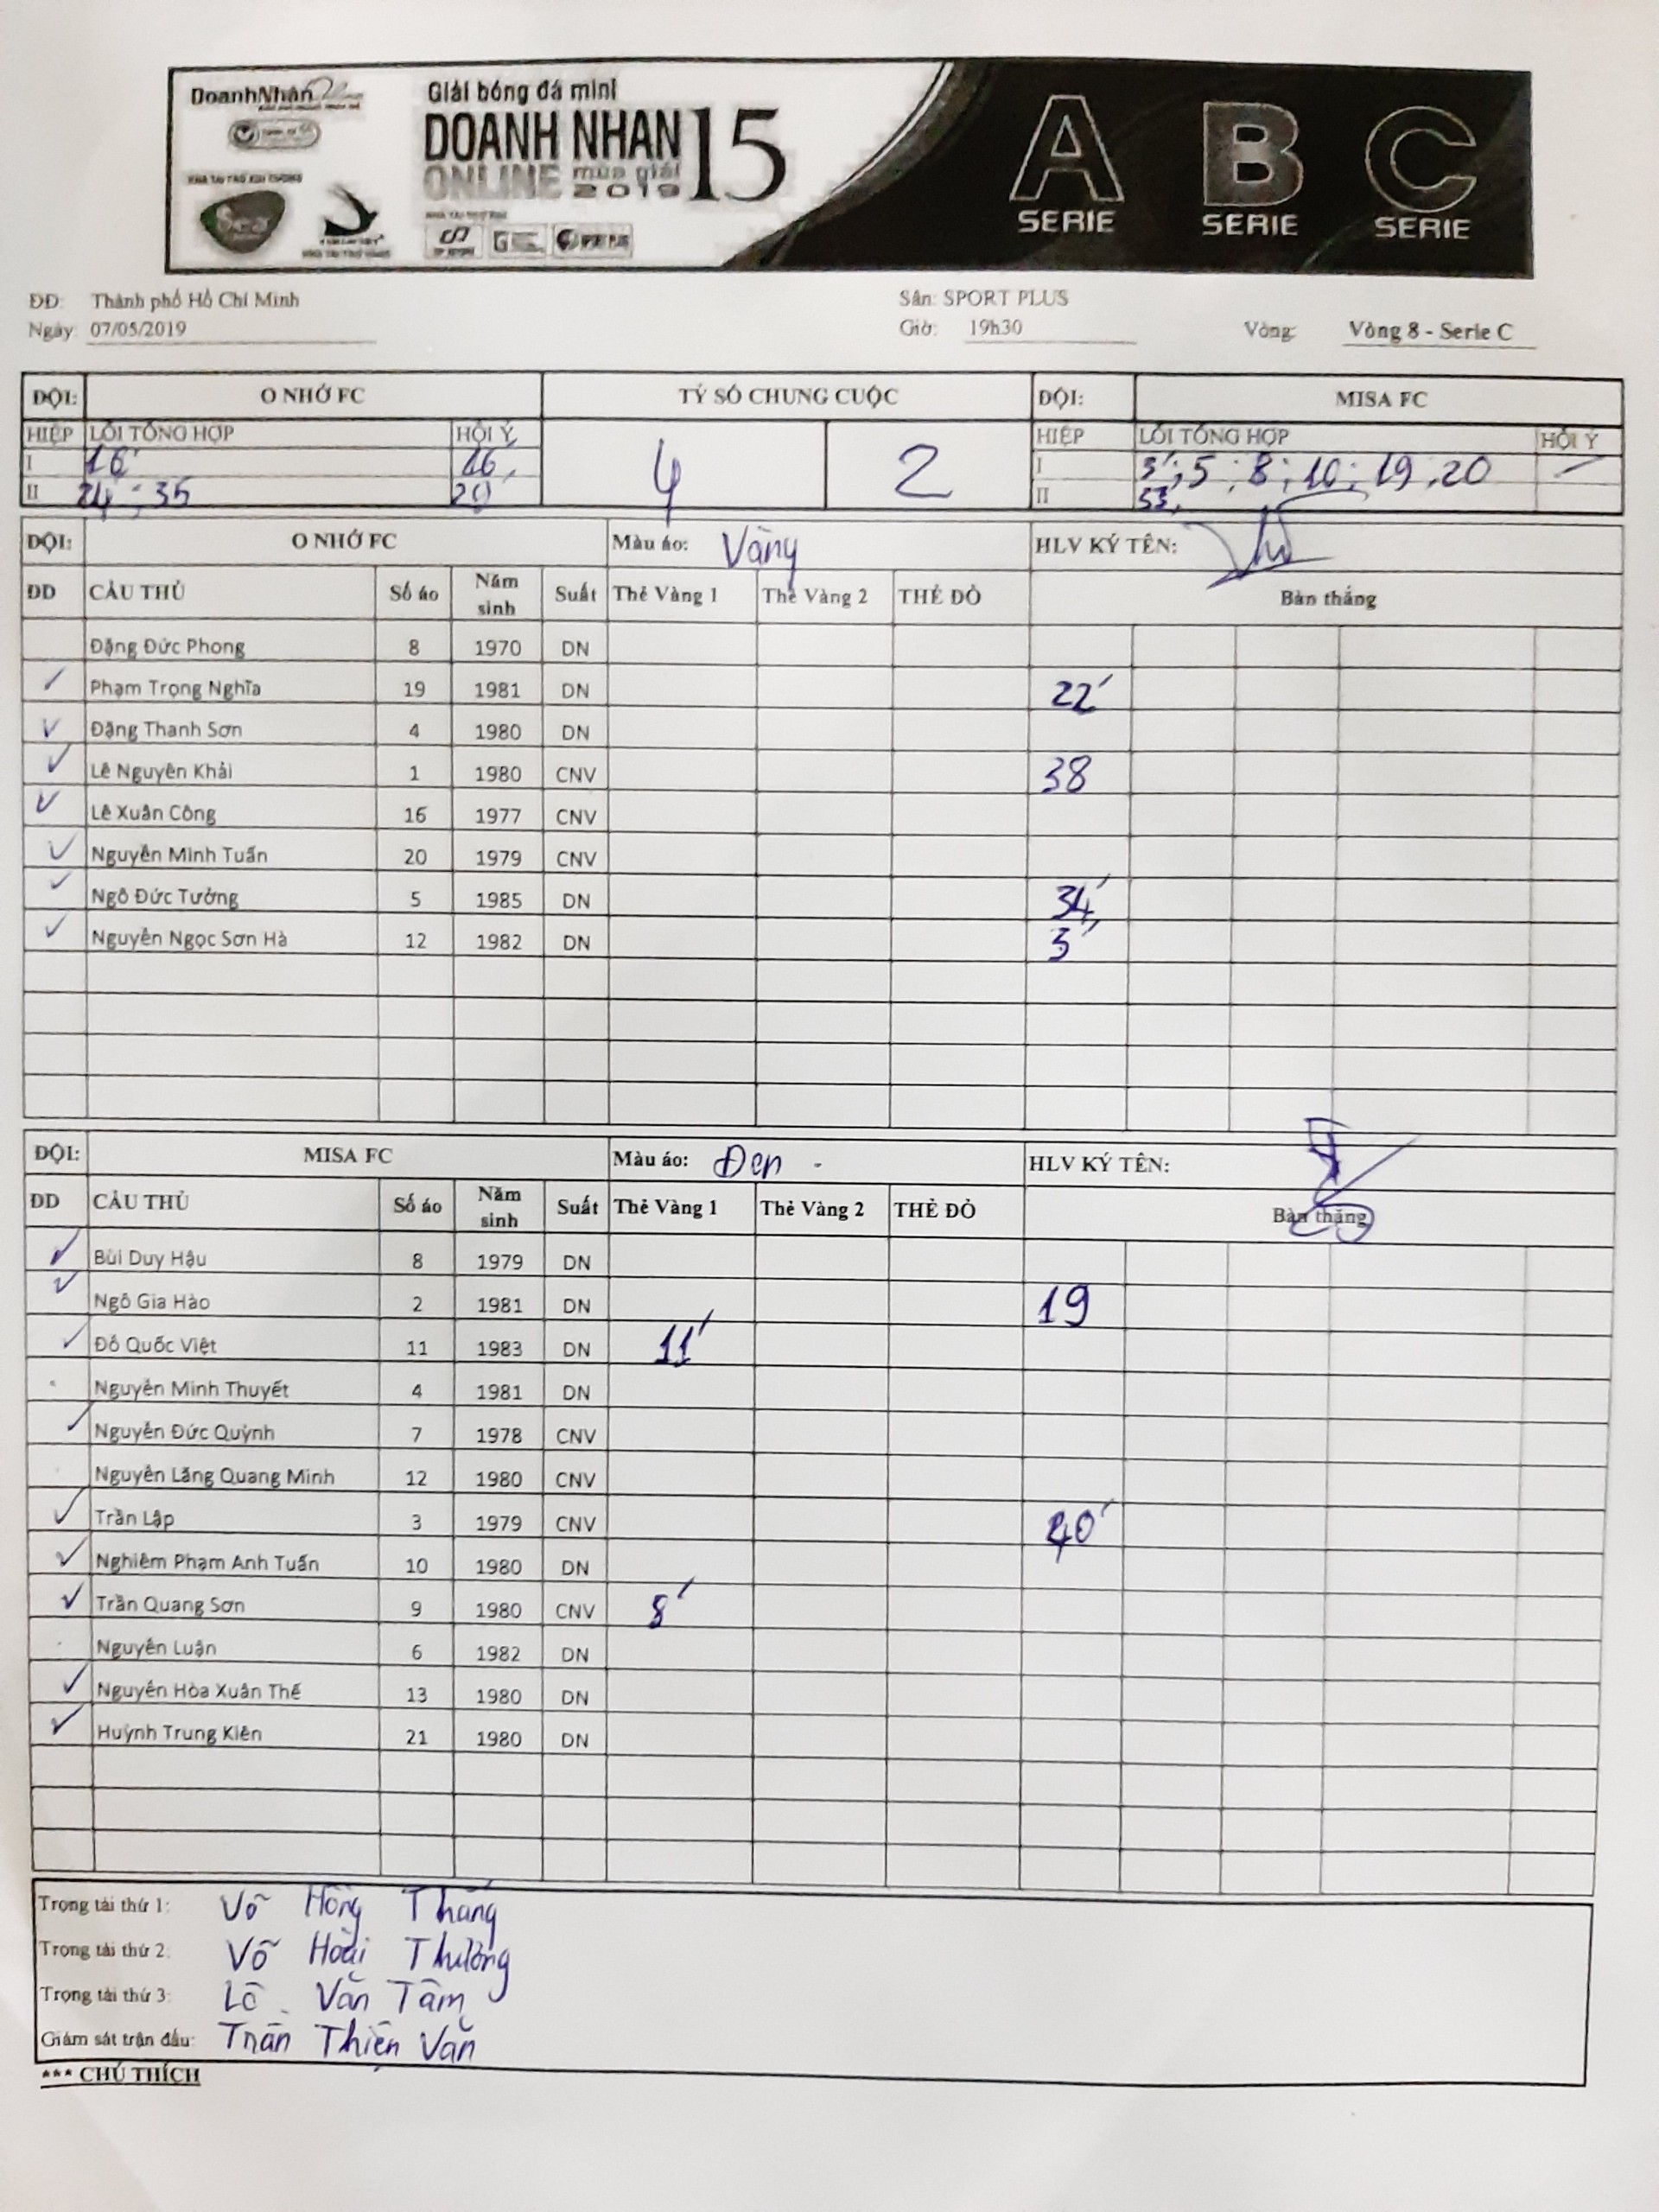 DoanhNhân
Giải bóng đá mini
DOANH NHAN 15
ONLINE mùa giải 2019
A B C
SERIE SERIE SERIE
ĐD: Thành phố Hồ Chí Minh Sân: SPORT PLUS
Ngày: 07/05/2019 Giờ: 19h30 Vòng: Vòng 8 - Serie C
ĐỘI: O NHỚ FC TỶ SỐ CHUNG CUỘC ĐỘI: MISA FC
HIỆP LỖI TỔNG HỢP HỘI Ý 4 2 HIỆP LỖI TỔNG HỢP HỘI Ý
I 16' 16' I 3'; 5; 8; 10; 19, 20 -
II 24'; 35 II
ĐỘI: O NHỚ FC Màu áo: Vàng HLV KÝ TÊN:
ĐD CẦU THỦ Số áo Năm sinh Suất Thẻ Vàng 1 Thẻ Vàng 2 THẺ ĐỎ Bàn thắng
Đặng Đức Phong 8 1970 DN
✓ Phạm Trọng Nghĩa 19 1981 DN 22'
✓ Đặng Thanh Sơn 4 1980 DN
✓ Lê Nguyên Khải 1 1980 CNV 38
✓ Lê Xuân Công 16 1977 CNV
✓ Nguyễn Minh Tuấn 20 1979 CNV
✓ Ngô Đức Tưởng 5 1985 DN 34'
✓ Nguyễn Ngọc Sơn Hà 12 1982 DN 3'
ĐỘI: MISA FC Màu áo: Đen HLV KÝ TÊN:
ĐD CẦU THỦ Số áo Năm sinh Suất Thẻ Vàng 1 Thẻ Vàng 2 THẺ ĐỎ Bàn thắng
✓ Bùi Duy Hậu 8 1979 DN
✓ Ngô Gia Hào 2 1981 DN 19
✓ Đỗ Quốc Việt 11 1983 DN 11'
Nguyễn Minh Thuyết 4 1981 DN
✓ Nguyễn Đức Quỳnh 7 1978 CNV
Nguyễn Lăng Quang Minh 12 1980 CNV
✓ Trần Lập 3 1979 CNV 40'
✓ Nghiêm Phạm Anh Tuấn 10 1980 DN
✓ Trần Quang Sơn 9 1980 CNV 8'
Nguyễn Luận 6 1982 DN
✓ Nguyễn Hòa Xuân Thế 13 1980 DN
✓ Huỳnh Trung Kiên 21 1980 DN
Trọng tài thứ 1: Võ Hồng Thắng
Trọng tài thứ 2: Võ Hoài Thương
Trọng tài thứ 3: Văn Tâm
Giám sát trận đấu: Trần Thiện Văn
*** CHÚ THÍCH